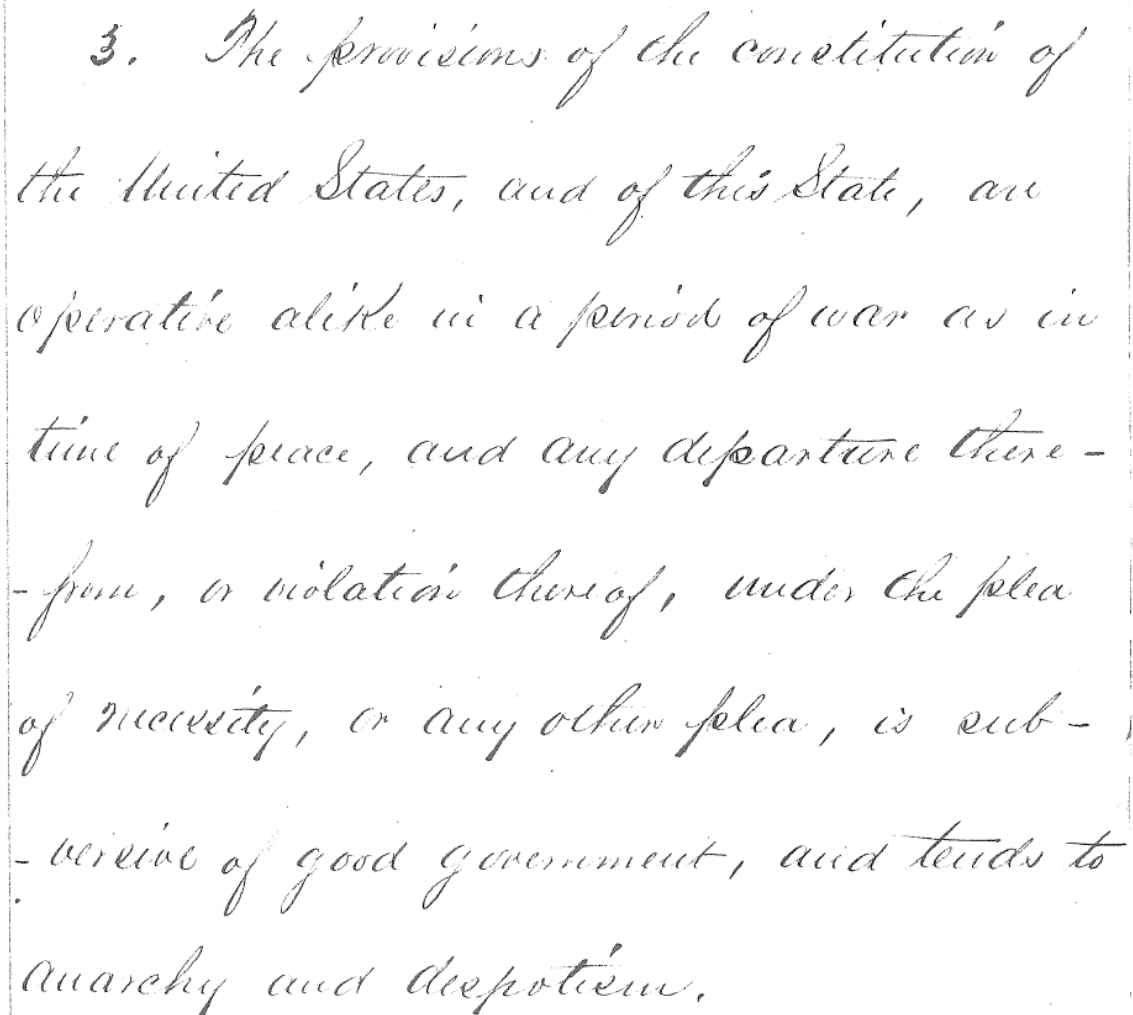 3. The provisions of the constitution of
the United States, and of this State, are
operative alike in a period of war as in
time of peace, and any departure there-
-from, or violation thereof, under the plea
of necessity, or any other plea, is sub-
-versive of good government, and tends to
anarchy and despotism.